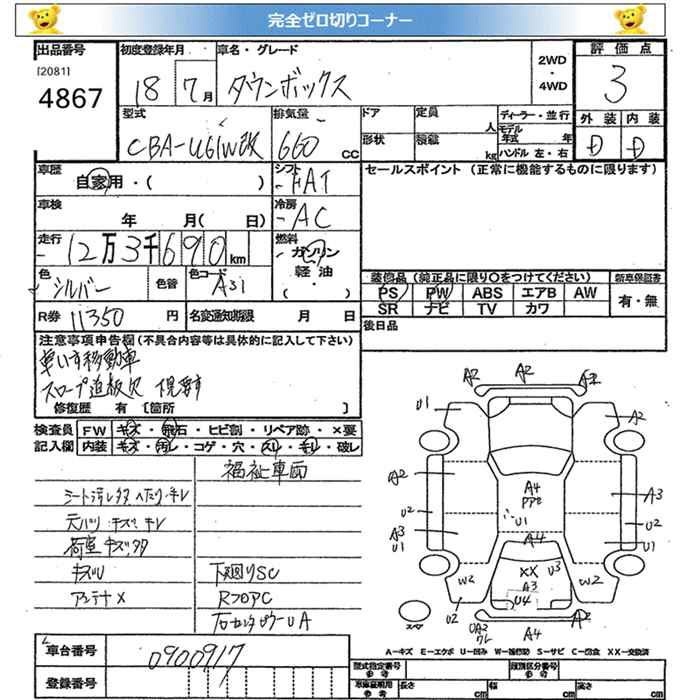 完全ゼロ切りコーナー
出品番号 [2081] 4867
初度登録年月 18 7月
車名・グレード タウンボックス
2WD ・ 4WD
評価点 3
型式 CBA-U61W改
排気量 660 cc
ドア 形状
定員 人 積載 kg
ディーラー・並行
モデル年式 年
ハンドル 左・右
外装 D 内装 D
車歴 自家用・( )
シフト FAT
セールスポイント (正常に機能するものに限ります)
車検 年 月( 日)
冷房 AC
走行 12万3千690km
燃料 ガソリン 軽油 ( ・ )
色 シルバー 色替
色コード A31
装備品 (純正品に限り○をつけてください)
PS PW ABS エアB AW
SR ナビ TV カワ
新車保証書 有・無
R券 11350 円
名変通知期限 月 日
後日品
注意事項申告欄 (不具合内容等は具体的に記入して下さい)
車いす移動車
修復歴 有 〔箇所 〕
検査員記入欄
FW キズ・飛石・ヒビ割・リペア跡・×要
内装 キズ・汚レ・コゲ・穴・スリ・キレ・破レ
福祉車両
元バリ キズ、キレ
荷室 キズ、タタ
キズU
アンテナ×
下廻りSC
RフロアC
A2 A2 A2
U1 A2
A2 A4 A3
U2 U1 U2
A3 U1 A4 U1
W2 XX U3 W2
A3 U4
U2 A4 A2 U2
スペア
A−キズ E−エクボ U−凹み W−補修跡 S−サビ C−腐食 XX−交換済
車台番号 0900917
登録番号
型式指定番号 参考
類別区分番号 参考
車庫証明用 参考 長さ cm 幅 cm 高さ cm